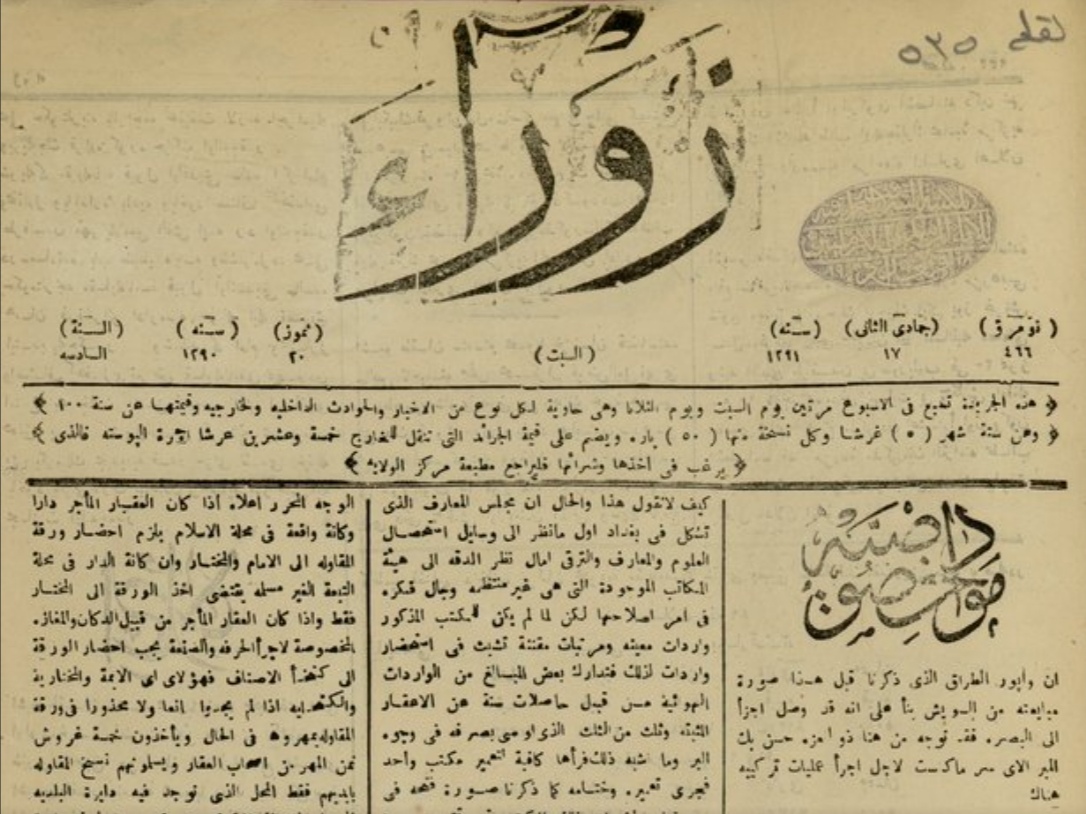 زوراء
( نومرو ) ( جمادى الثانى ) ( سنه ) ( السبت ) ( تموز ) ( سنه ) ( السنة )
٤٦٦ ١٧ ١٢٩١ ٢٠ ١٢٩٠ السادسه
هذه الجريدة تطبع فى الاسبوع مرتين يوم السبت ويوم الثلاثا وهى حاوية لكل نوع من الاخبار والحوادث الداخليه والخارجيه وقيمتها عن سنة ١٠٠
وعن ستة شهر ( ٥ ) غرشا وكل نسخة منها ( ٥٠ ) باره ويضم على قيمة الجرائد التى تنقل للخارج خمسة وعشرين غرشا اجرة البوسته فالذى
يرغب فى أخذها وشرائها فليراجع مطبعة مركز الولايه
داخليه
مواد خصوصيه
ان وابور الطراق الذى ذكرنا قبل هذا صورة
مبايعته من السويش بنأ على انه قد وصل اجزأ
الى البصره فقد توجه من هنا ذو امزه حسن بك
المير الاى سر ماكست لاجل اجرأ عمليات تركيبه
هناك
كيف لانقول هذا والحال ان مجلس المعارف الذى
تشكل فى بغداد اول مانظر الى وسايل استحصال
العلوم والمعارف والترقى امال نظر الدقه الى هيئة
المكاتب الموجودة التى هى غير منتظمه وجال فكره
فى امر اصلاحها لكن لما لم يكن للمكتب المذكور
واردات معينه ومرتبات مقننة تشبث فى استحضار
واردات لذلك فتدارك بعض المبالغ من الواردات
الهوئية من قبيل حاصلات سنة عن الاعقار
المثبته وثلث من الثلث الذى اوصى بصرفه فى وجوه
البر وما اشبه ذلك فرأها كافية لتعمير مكتب وأحد
فجرى تعميره وختامه كما ذكرنا صورة فتحه فى
الوجه المحرر اعلاه أذا كان العقار المأجر دارا
وكانة واقعة فى محلة الاسلام يلزم احضار ورقة
المقاوله الى الامام والمختار وان كانة الدار فى محلة
التبعة الغير مسلمه يقتضى اخذ الورقة الى المختار
فقط واذا كان العقار المأجر من قبيل الدكان والمغاز
المخصوصة لاجرأ الحرفه والصنعة يجب احضار الورقة
الى كتخدأ الاصناف فهؤلاى اى الايمة والمختارية
والكتخدايه اذا لم يجدوا انعا ولا محذورا فى ورقة
المقاوله يمهروها فى الحال ويأخذون خمسة غروش
ثمن المهر من اصحاب العقار ويسلونهم نسخ المقاوله
بايديهم فقط المحل الذى توجد فيه دايرة البلديه